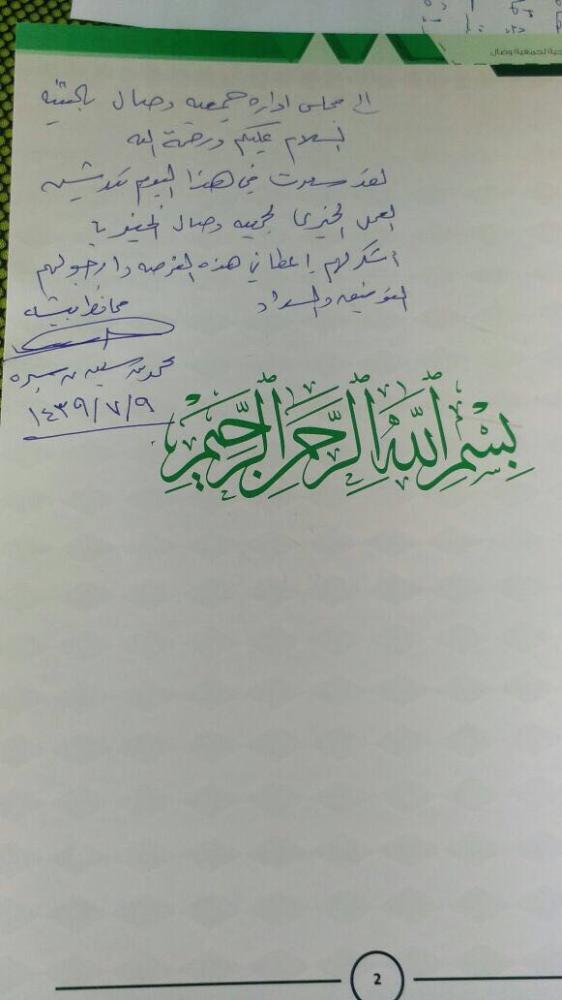 الى مجلس ادارة جمعية وصال
السلام عليكم ورحمة الله
لقد سعدت في هذا اليوم بتدشين
العمل الخيري لجمعية وصال
أشكر لهم إعطائي هذه الفرصة وارجو لهم
التوفيق والسداد
محافظ بيشه
محمد بن سعيد بن سبره
١٤٣٩/٧/٩
بِسْمِ اللَّهِ الرَّحْمَنِ الرَّحِيمِ
2